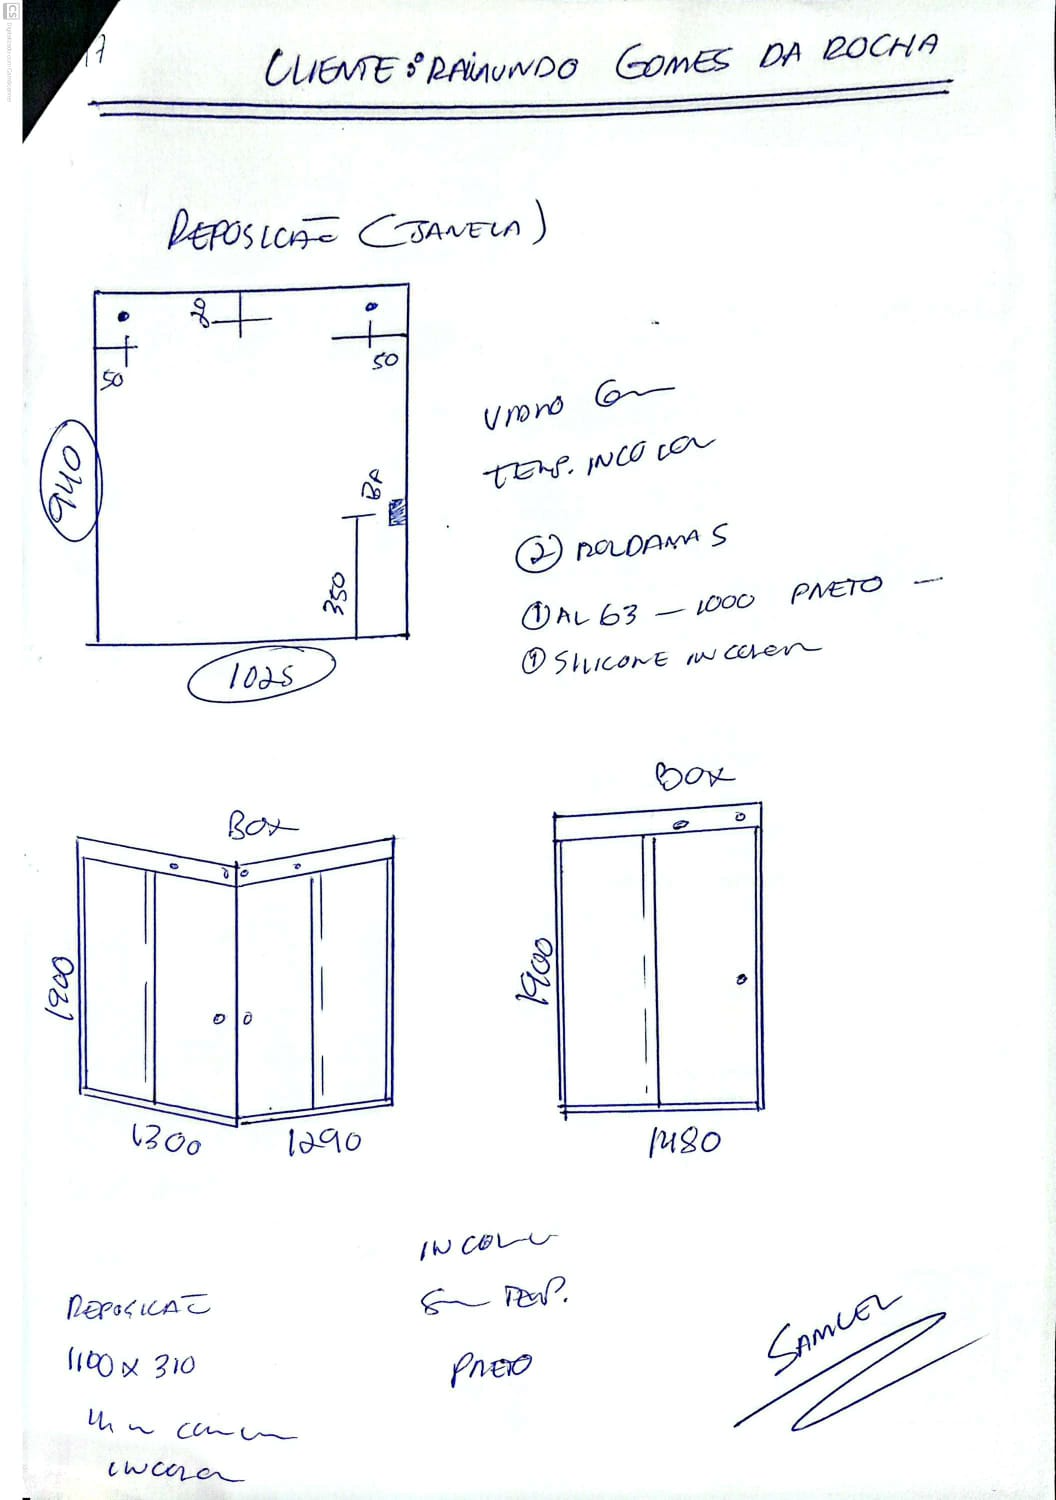 17
CLIENTE: RAIMUNDO GOMES DA ROCHA
REPOSICÃO (JANELA)
20
50
50
940
BA
350
1025
VIDRO 6m
TEMP. INCOLOR
(2) ROLDANAS
(1) AL 63 - 1000 PRETO -
(1) SILICONE INCOLOR
BOX
1900
1300
1290
BOX
1900
1480
INCOLOR
8m TEMP.
PRETO
REPOSICAO
1100 X 310
4m comum
INCOLOR
SAMUEL
CS Digitalizado com CamScanner